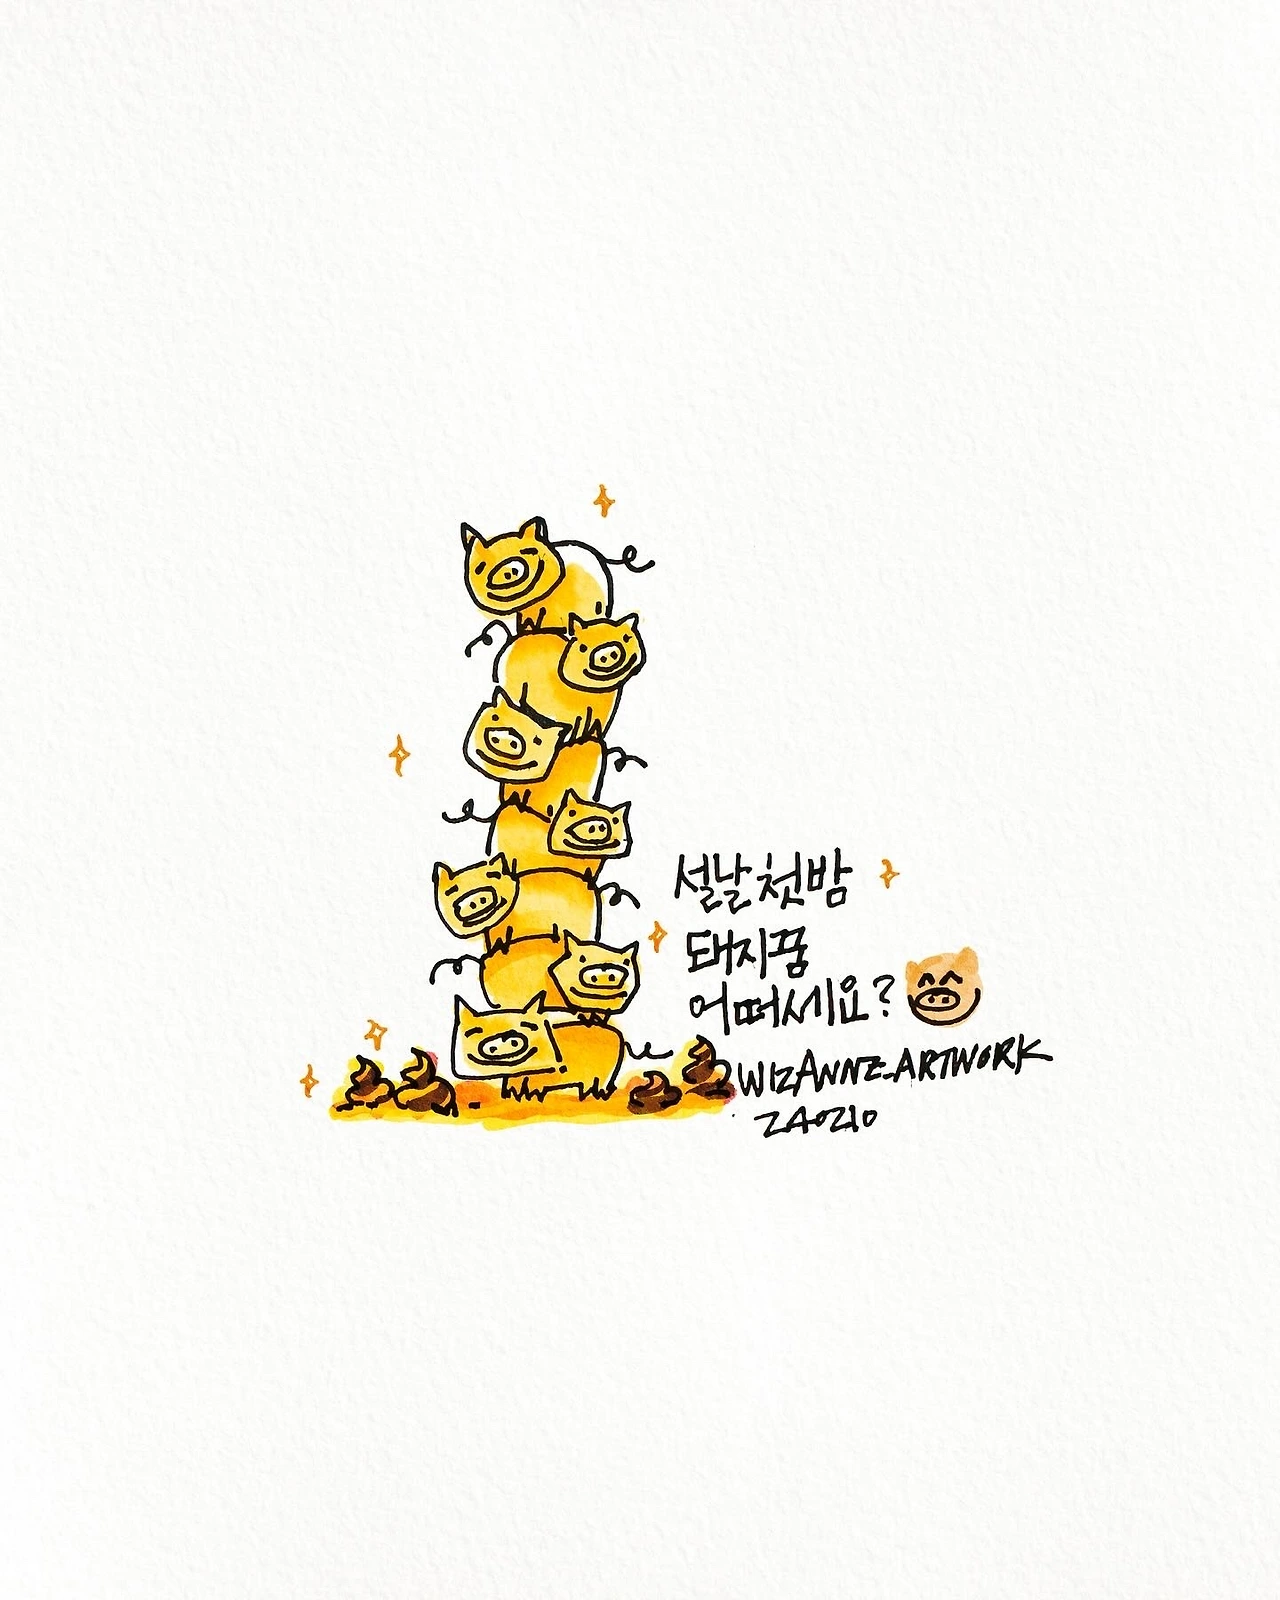 설날 첫밤
돼지꿈
어떠세요?
WIZANNE_ARTWORK
240210